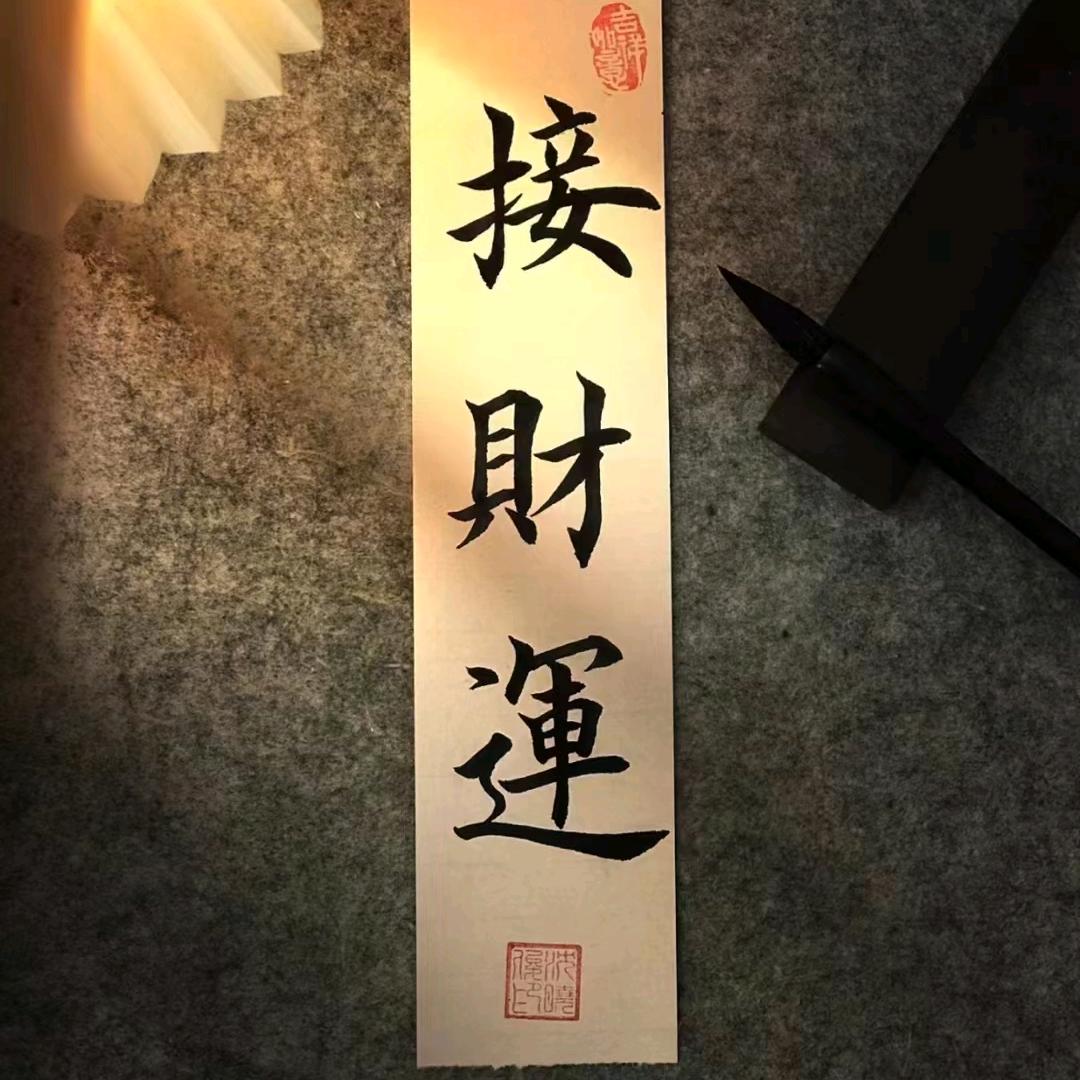 吉祥如意
接財運